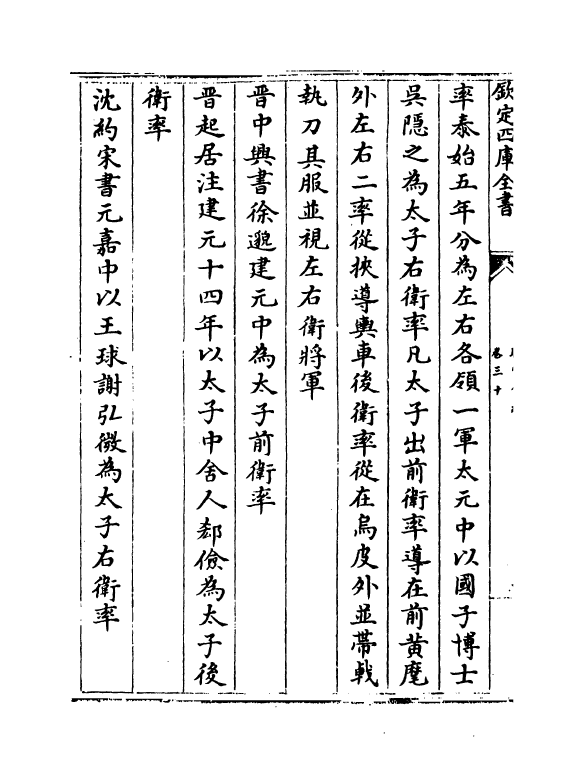 欽定四庫全書
卷三十
率泰始五年分為左右各領一軍太元中以國子博士
吳隱之為太子右衛率凡太子出前衛率導在前黄麾
外左右二率從挾導輿車後衛率從在烏皮外並帶戟
執刀其服並視左右衛將軍
晉中興書徐邈建元中為太子前衛率
晉起居注建元十四年以太子中舍人郄儉為太子後
衛率
沈約宋書元嘉中以王球謝弘微為太子右衛率